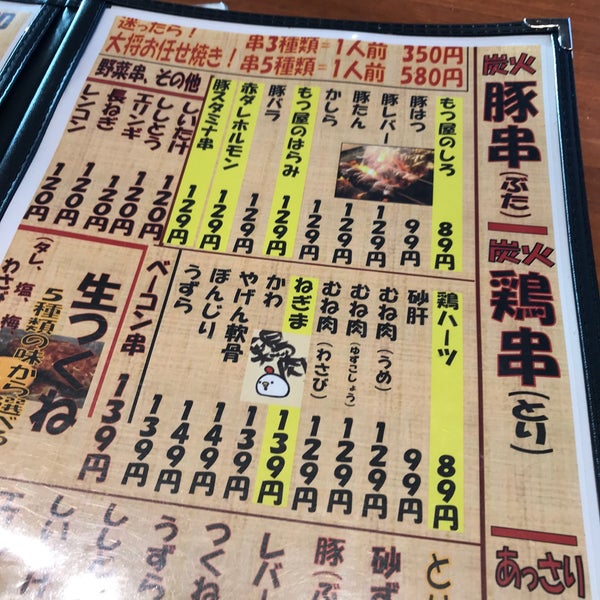 迷ったら！
大将お任せ焼き！
串3種類=1人前 350円
串5種類=1人前 580円
炭火
豚串(ぶた)
もつ屋のしろ 89円
豚はつ 99円
豚レバー
豚たん
かしら 129円
もつ屋のはらみ 129円
豚バラ 129円
赤ダレホルモン 129円
豚スタミナ串 129円
野菜串、その他
しいたけ 120円
ししとう 120円
エリンギ 120円
長ねぎ 120円
レンコン 120円
炭火
鶏串(とり)
鶏ハーツ 89円
砂肝 99円
むね肉(うめ) 129円
むね肉(ゆずこしょう) 129円
むね肉(わさび) 129円
ねぎま 139円
かわ 139円
やげん軟骨 149円
ぼんじり 149円
うずら 139円
ベーコン串 139円
生つくね
5種類の味から選べる
(タレ、塩、
わさび、梅
あっさり
とり
砂ず
豚(ぶ
レバー
つくね
うずら
ししとう
しい